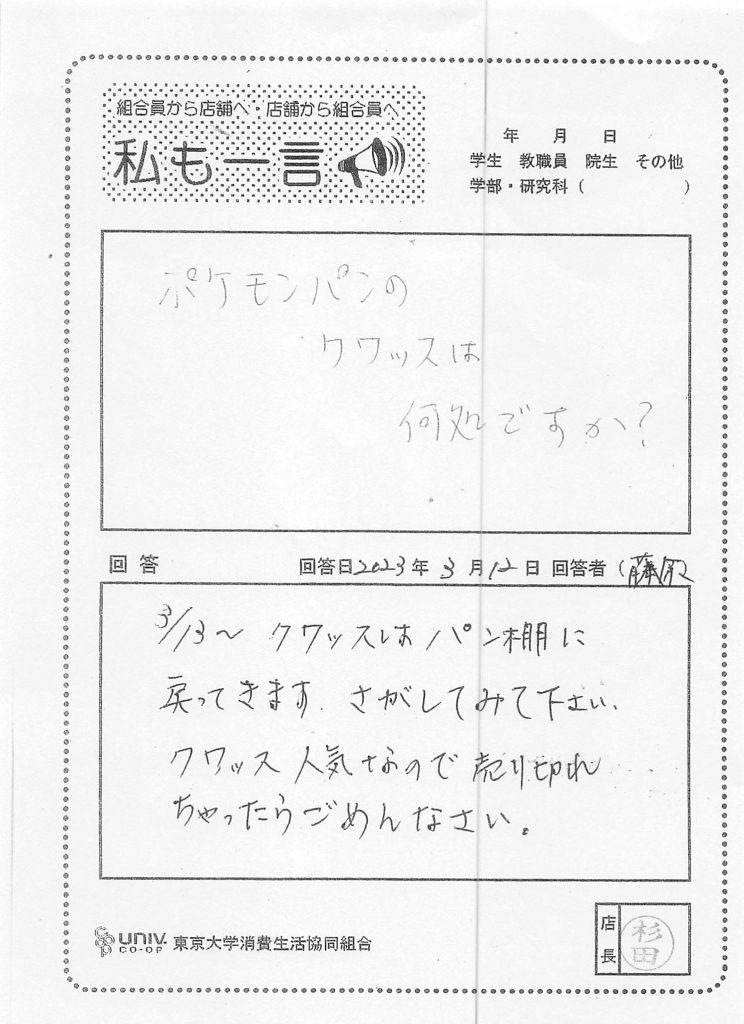 組合員から店舗へ・店舗から組合員へ
私も一言
年 月 日
学生 教職員 院生 その他
学部・研究科( )
ポケモンパンの
クワッスは
何処ですか?
回答 回答日2023年3月12日 回答者(藤原)
3/13～ クワッスは パン棚に
戻ってきます. さがしてみて下さい.
クワッス 人気なので 売り切れ
ちゃったらごめんなさい。
UNIV. CO-OP 東京大学消費生活協同組合
店長 杉田